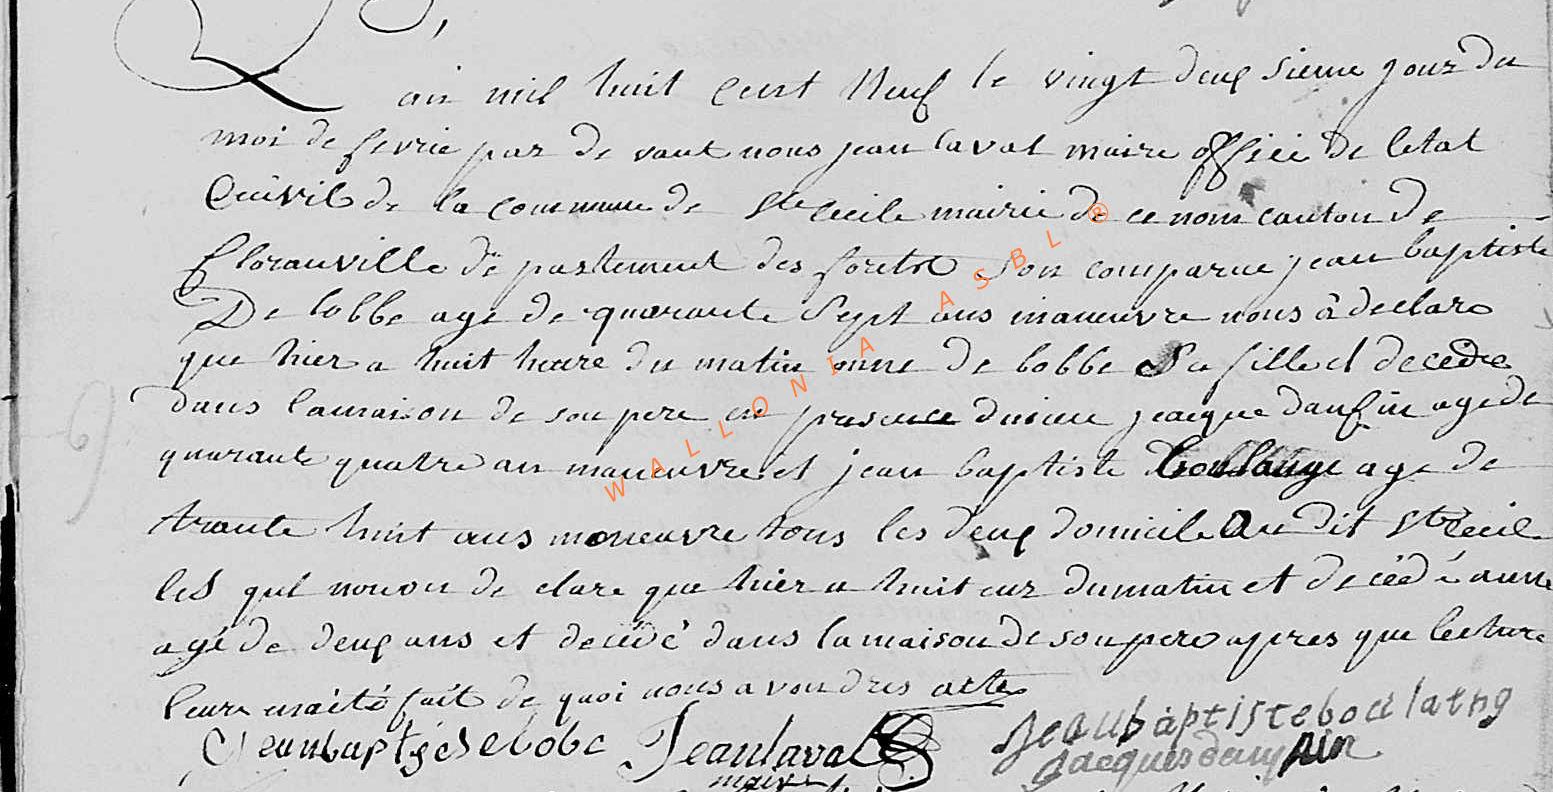 an mil huit cent Neuf le vingt deux sieme jour du
moi de fevrie par de vant nous jean laval maire officié de letat
Ciivil de la commune de Ste Cecile mairie de ce nom canton de
florauville de partement des foretst Son comparue jean baptiste
De lobbe age de quarante Sept ans maneuvre nous à declare
que hier a huit heure du matin anne de lobbe Sa fille et decedee
dans lamaison de son pere en presence du sieu jacque daufin age de
quarante quatre an maneuvre et jean baptiste boullange age de
trante huit ans maneuvre tous les deux domicile Au dit Ste Cecil
les quel nouon de clare que hier a huit eur du matin et decédé anne
agé de deux ans et decédé dans la maison de son pere apres que lecture
leure naété fait de quoi nous avon dres acte
Jeanbaptiste delobe Jean laval jeaubaptiste boulaeng
maire jacques daupin
WALLONIA ASBL ®